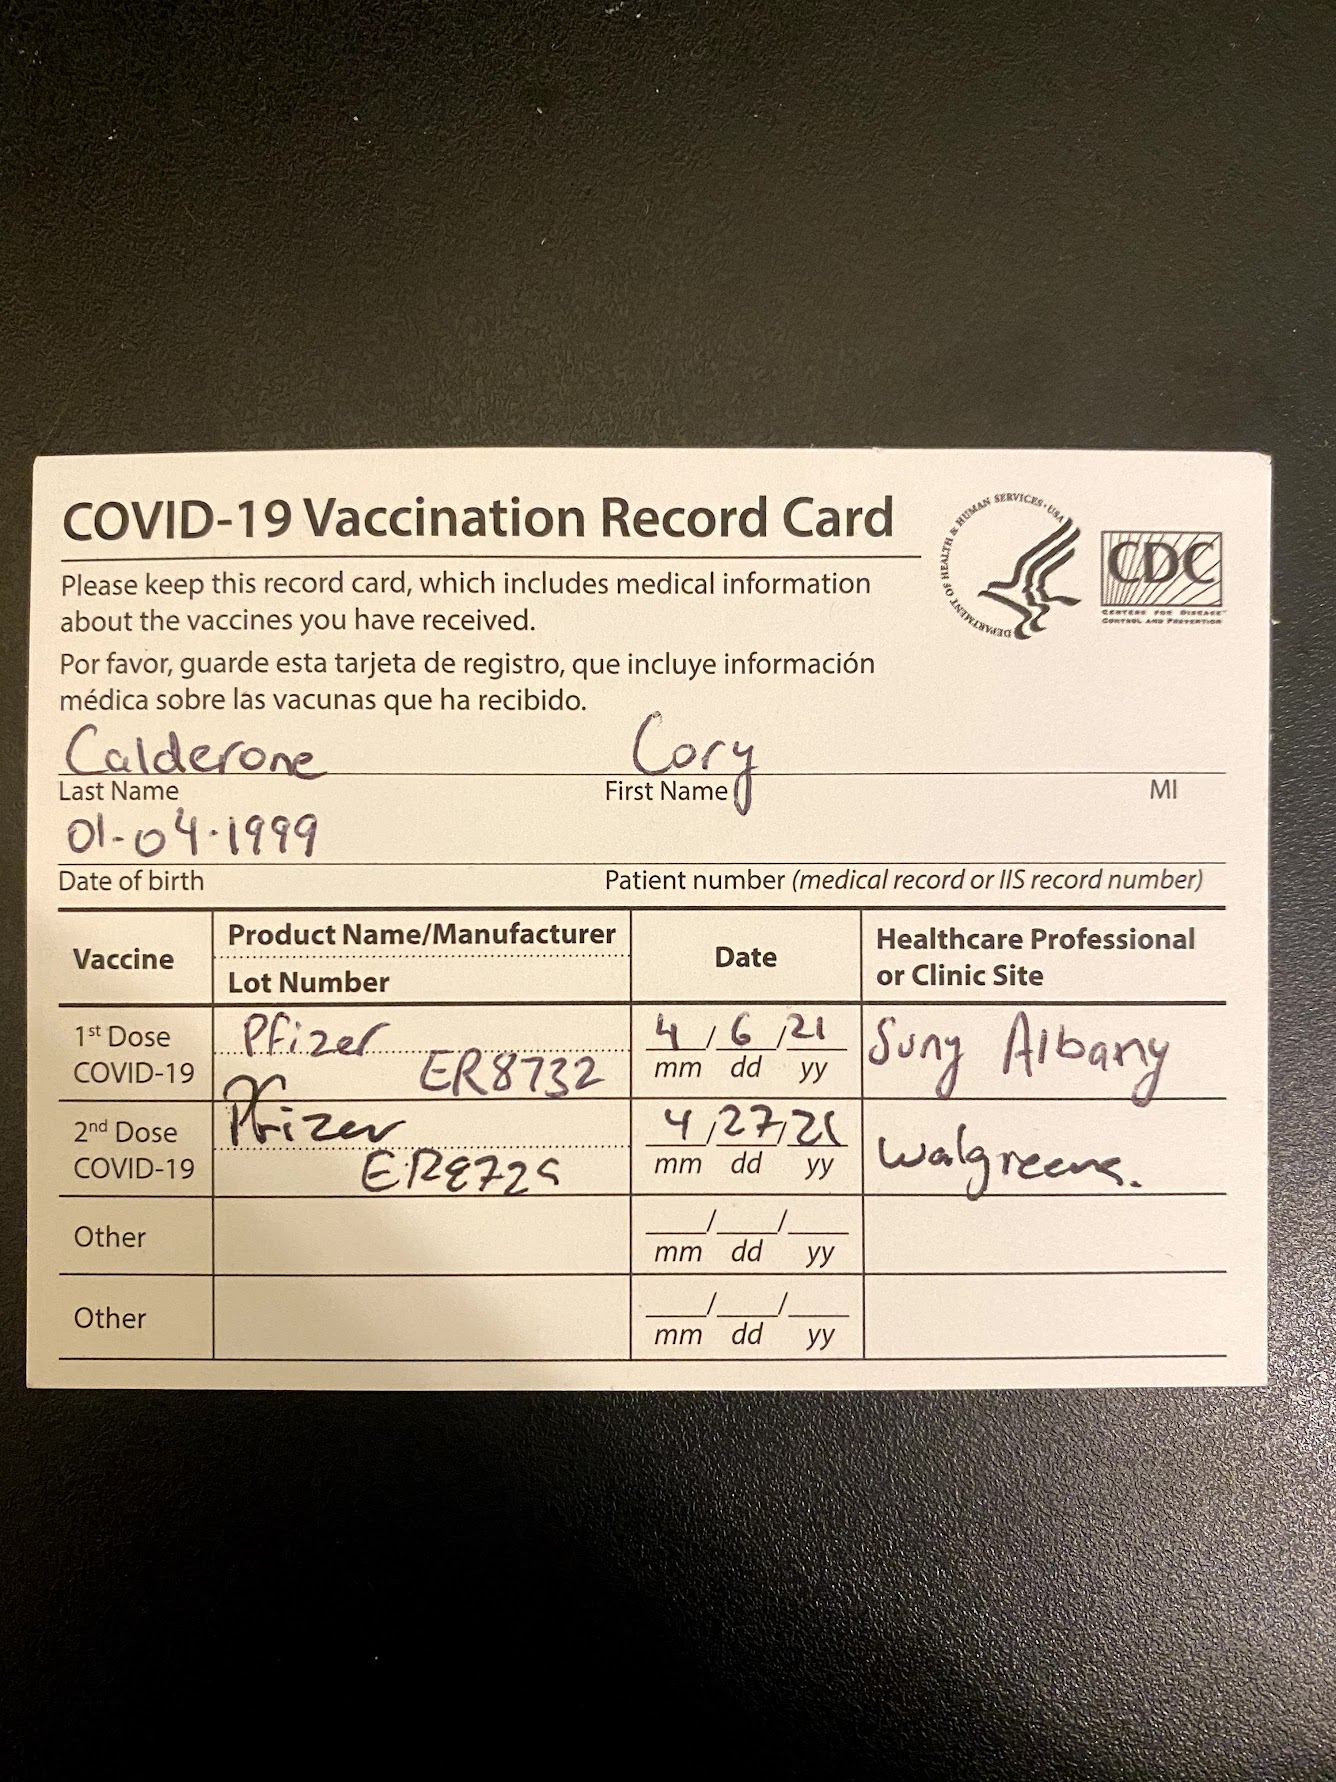 COVID-19 Vaccination Record Card
DEPARTMENT OF HEALTH & HUMAN SERVICES • USA
CDC
CENTERS FOR DISEASE
CONTROL AND PREVENTION
Please keep this record card, which includes medical information
about the vaccines you have received.
Por favor, guarde esta tarjeta de registro, que incluye información
médica sobre las vacunas que ha recibido.
Calderone Cory
Last Name First Name MI
01-04-1999
Date of birth Patient number (medical record or IIS record number)
Vaccine
Product Name/Manufacturer
Lot Number
Date
Healthcare Professional
or Clinic Site
1st Dose
COVID-19
Pfizer
ER8732
4/6/21
mm dd yy
Suny Albany
2nd Dose
COVID-19
Pfizer
4/27/21
mm dd yy
Walgreens.
Other
__/__/__
mm dd yy
Other
__/__/__
mm dd yy